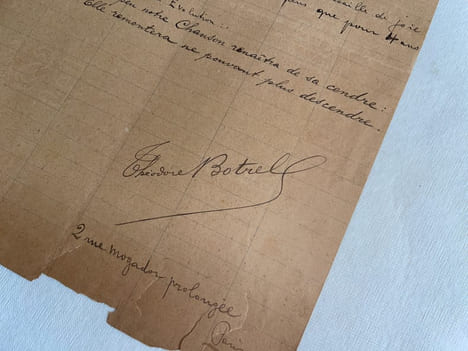 de joie
Évolution !:
que pour 4 ans
peu notre Chanson renaîtra de sa cendre :
Elle remontera ne pouvant plus descendre.
Théodore Botrel
2 rue Mogador prolongée
Paris